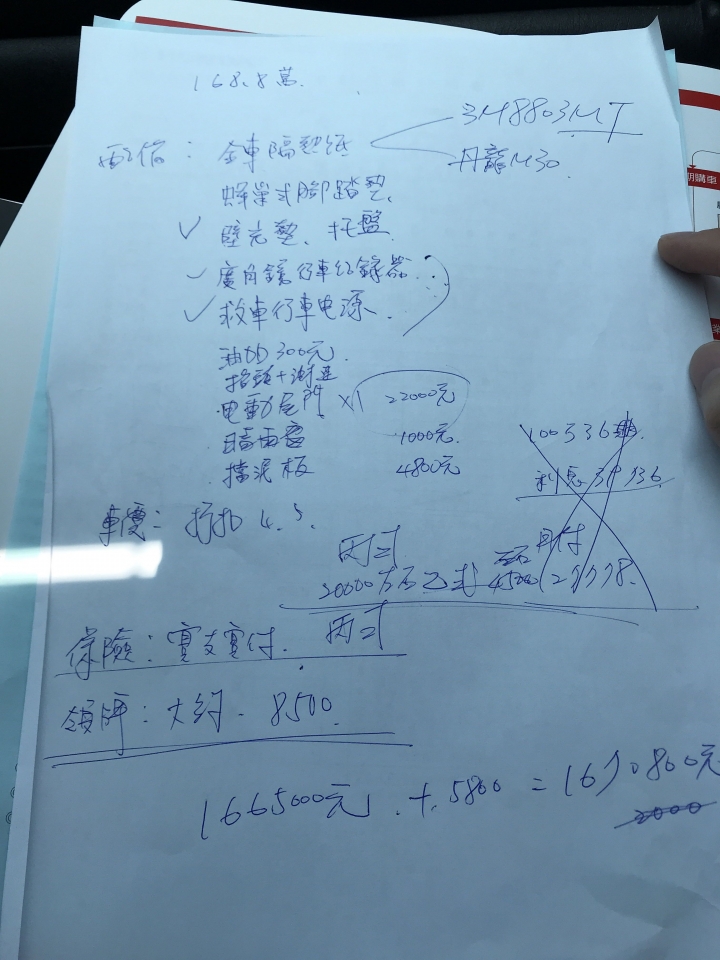 168.8萬
配備：全車隔熱紙
3M8803MT
丹龍M30
蜂巢式腳踏墊.
✓ 壁光墊、托盤
✓ 廣角鏡行車紀錄器
✓ 救車行車电源.
油 300元.
电動尾門 x1 22000元
晴雨窗 1000元.
擋泥板 4800元
100萬36期.
利息
月付
車價：折扣 4.5.
丙式
乙式
保險：實支實付. 丙式
領牌：大約 - 8500.
1665000元 + 5800 = 1670800元
2000
期購車